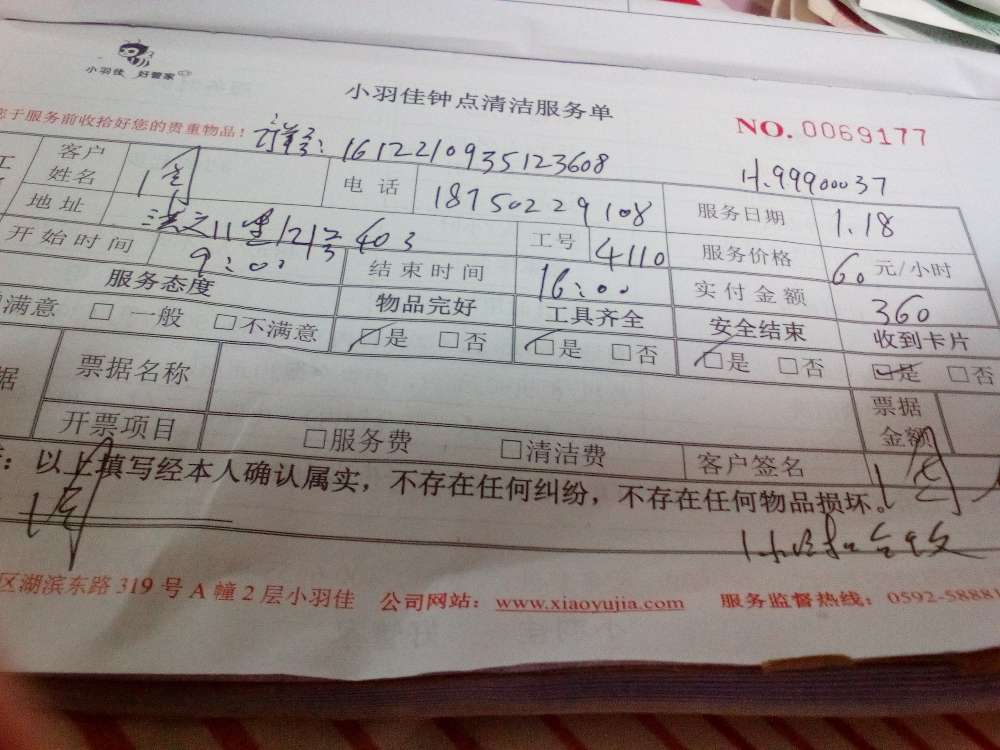 小羽佳 好管家
小羽佳钟点清洁服务单
您于服务前收拾好您的贵重物品！
NO. 0069177
订单号: 1612210935123608
H.99900037
客户姓名 电话 18750229108 服务日期 1.18
地址 洪文11里121号403 工号 4110 服务价格 60 元/小时
开始时间 9:00 结束时间 16:00 实付金额 360
服务态度 物品完好 工具齐全 安全结束 收到卡片
满意 □ 一般 □不满意 ☑是 □否 ☑是 □否 ☑是 □否 ☑是 □否
据 票据名称 票据金额
开票项目 □服务费 □清洁费 客户签名
：以上填写经本人确认属实，不存在任何纠纷，不存在任何物品损坏。
区湖滨东路 319 号 A 幢 2 层小羽佳 公司网站：www.xiaoyujia.com 服务监督热线：0592-58881